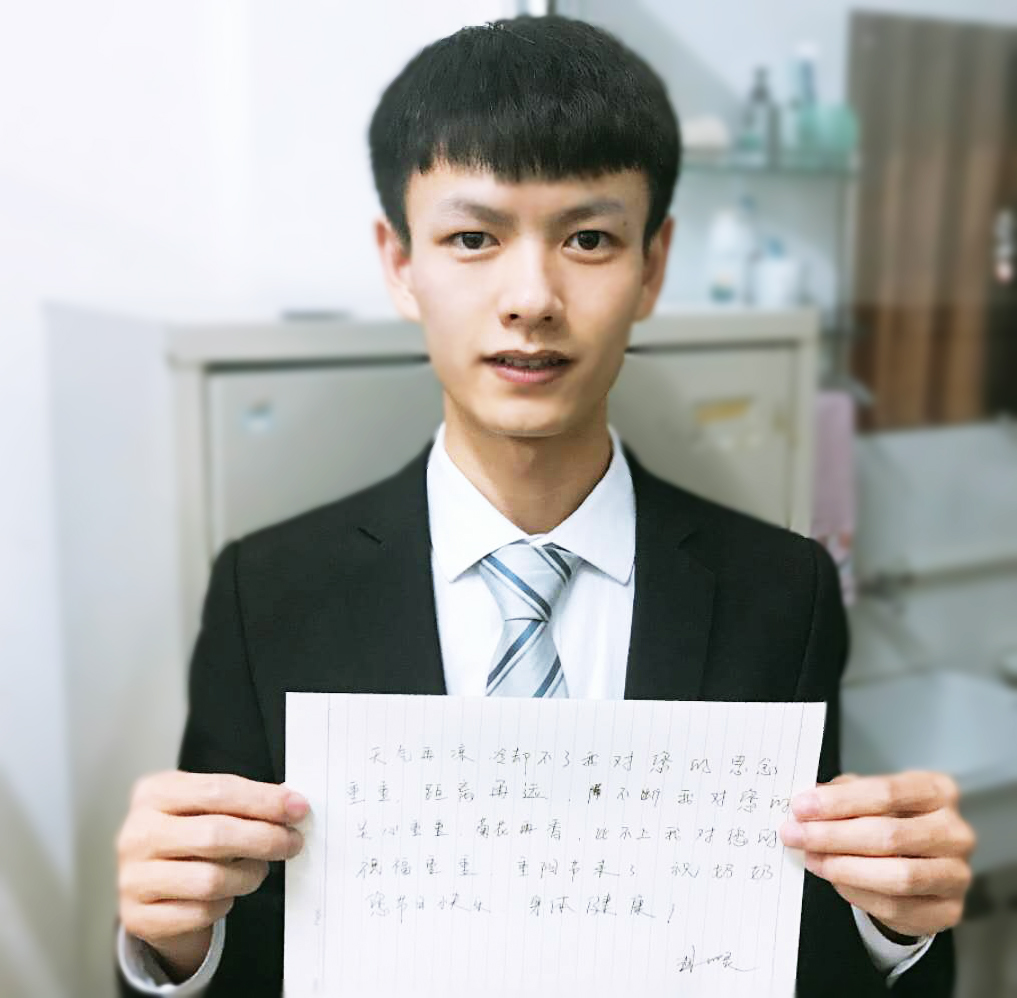 天气再凉 冷却不了我对您的思念
重重. 距离再远. 隔不断我对您的
关心重重. 菊花再香. 比不上我对您的
祝福重重. 重阳节来了 祝奶奶
您节日快乐 身体健康!